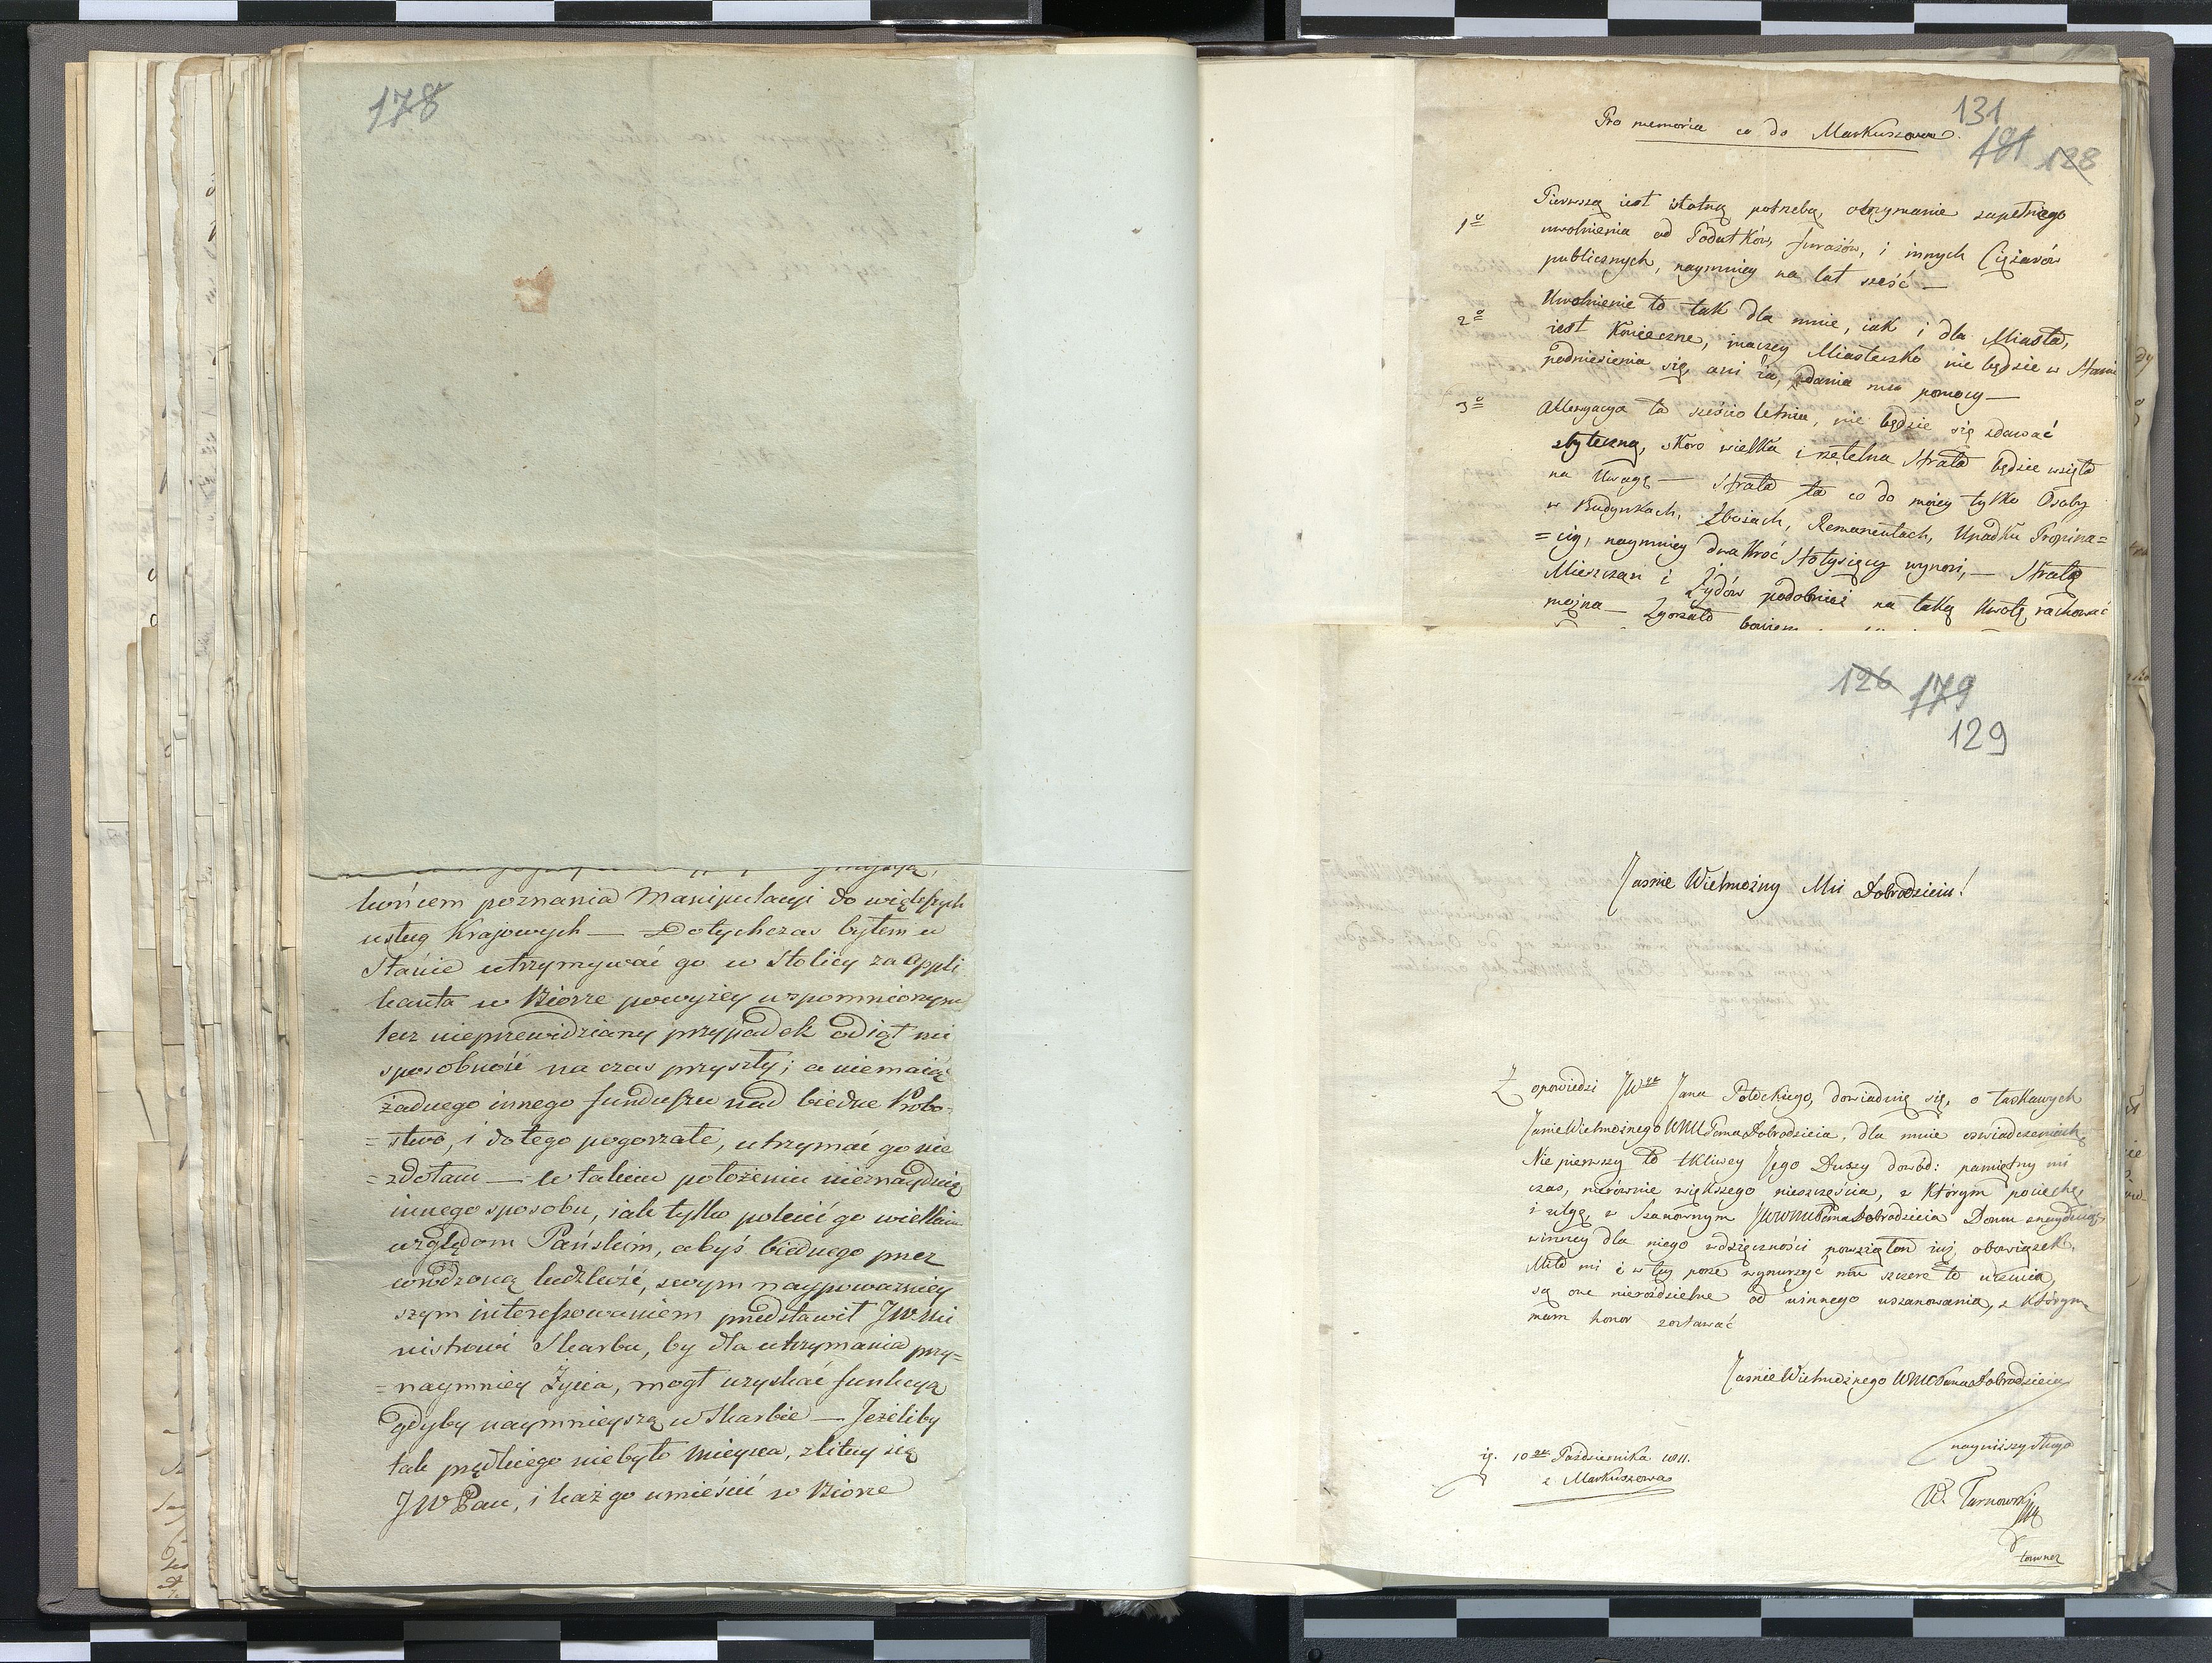 178
końcem poznania Manipulacyi do większych
usług Krajowych — Dotychczas byłem w
Stanie utrzymywać go w Stolicy za Appli
kanta w Biorze powyżey wspomnionym
lecz nieprzewidziany przypadek odiął mi
sposobność na czas przyszły; a niemaiąc
żadnego innego funduszu nad biedne Probo-
=stwo, i do tego pogorzałe, utrzymać go nie
=zdołam — W takim położeniu nieznayduię
innego sposobu, iak tylko polecić go wielkim
względom Pańskim, abyś biednego przez
wrodzoną ludzkość, swym naypoważniey
szym interessowaniem przedstawił JW. Mi
nistrowi Skarbu, by dla utrzymania przy=
=naymniey Życia, mogł uzyskać funkcyą
gdyby naymnieyszą w Skarbie — Jeżeliby
tak prędkiego niebyło mieysca, zlituy się
JWPan, i każ go umieścić w Biorze
131
181 128
Pro memoria co do Markuszowa.
1º Pierwszą iest istotną potrzebą, otrzymanie zupełnego
uwolnienia od Podatków, furażów, i innych Ciężarów
publicznych, naymniey na lat sześć —
2º Uwolnienie to tak dla mnie, iak i dla Miasta,
iest Konieczne, inaczey Miasteczko nie będzie w Stanie
podniesienia się, ani ia, podania mu pomocy —
3º Allewyacya ta sześcio letnia, nie będzie się zdawać
zbyteczną, skoro wielka i rzetelna Strata będzie wzięta
na Uwagę — Strata ta co do moiey tylko Osoby
w Budynkach, Zbożach, Remanentach, Upadku Propina=
=cyi, naymniey dwa kroć Stotysięcy wynosi, — Stratę
Mieszczan i Żydów podobnież na taką Kwotę rachować
można — Zgorzało bowiem
126 179
129
Jaśnie Wielmożny Mci Dobrodzieiu!
Z opowiedzi JWgo Jana Potockiego, dowiaduię się, o łaskawych
JaśnieWielmożnego WMCPanaDobrodzieia, dla mnie oświadczeniach,
Nie pierwszy to tkliwey Jego Duszy dowód: pamiętny mi
czas, nierównie większego nieszczęścia, w którym pociechę,
i ulgę, w Szanownym JWWMCPanaDobrodzieia Domu znayduiąc,
winney dla niego wdzięczności powziąłem iuż obowiązek,
Miło mi i w tey porze wynurzyć mu szczere te uczucia,
są one nierozdzielne od winnego uszanowania, z którym
mam honor zostawać
JaśnieWielmożnego WMCPanaDobrodzieia
nayniższy sługa
W. Tarnowski
d. 10go Października 1811.
z Markuszowa